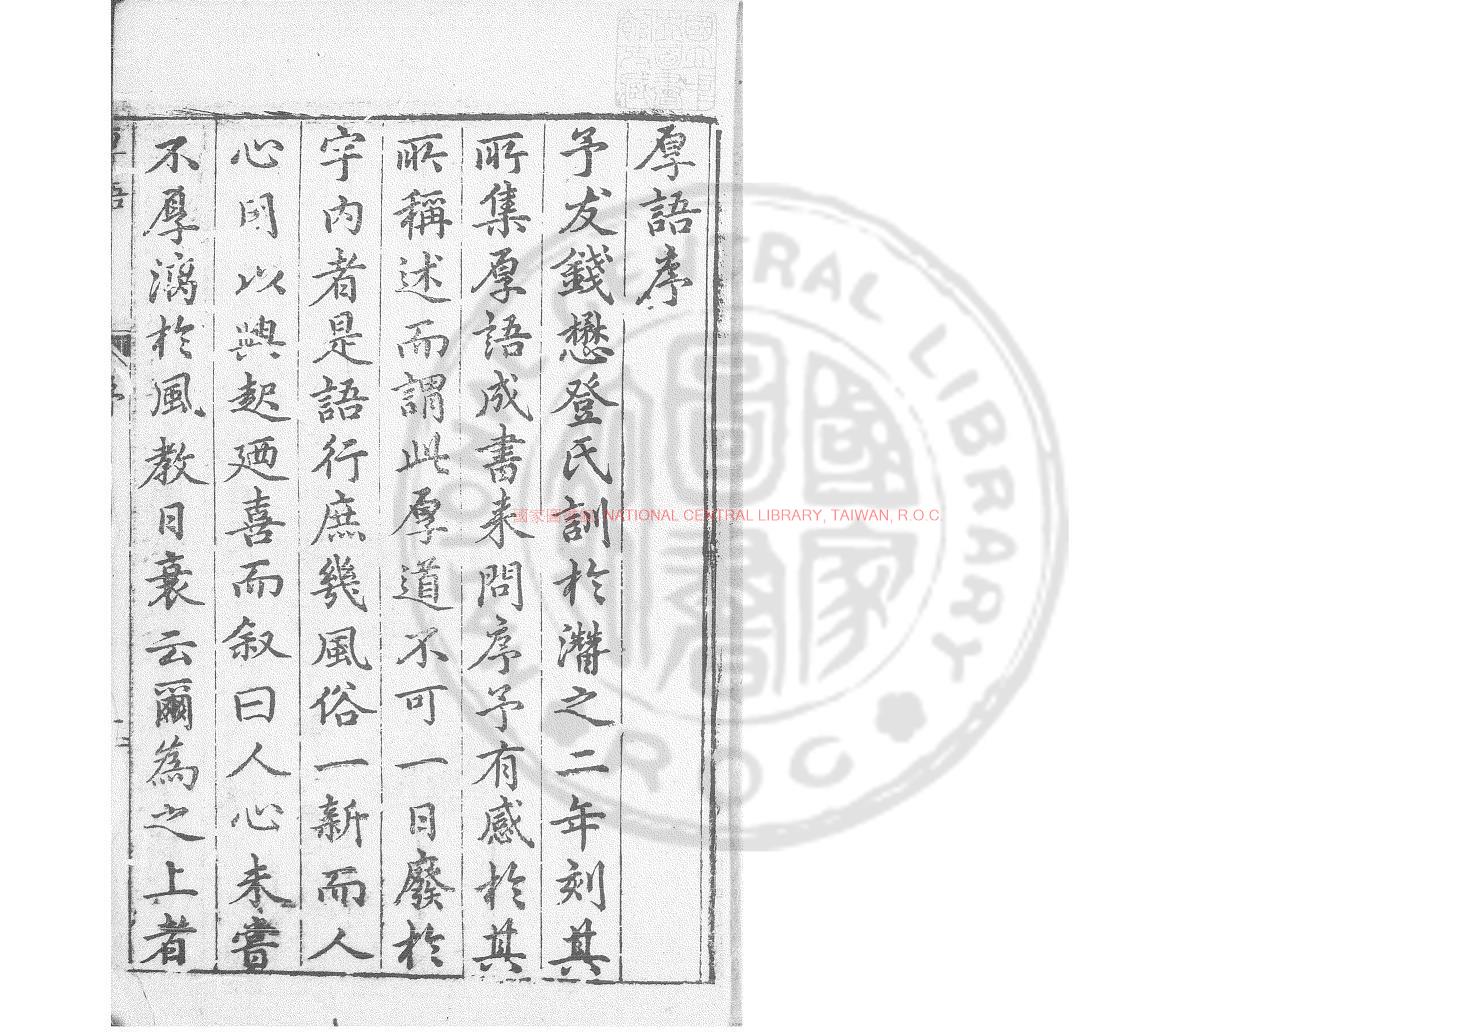 厚語序
予友錢懋登氏訓於濳之二年刻其
所集厚語成書来問序予有感於其
所稱述而謂此厚道不可一日廢於
宇内者是語行庶幾風俗一新而人
心因以興起廼喜而叙曰人心未嘗
不厚漓於風教日衰云爾為之上者
國家圖書館, NATIONAL CENTRAL LIBRARY, TAIWAN, R.O.C.